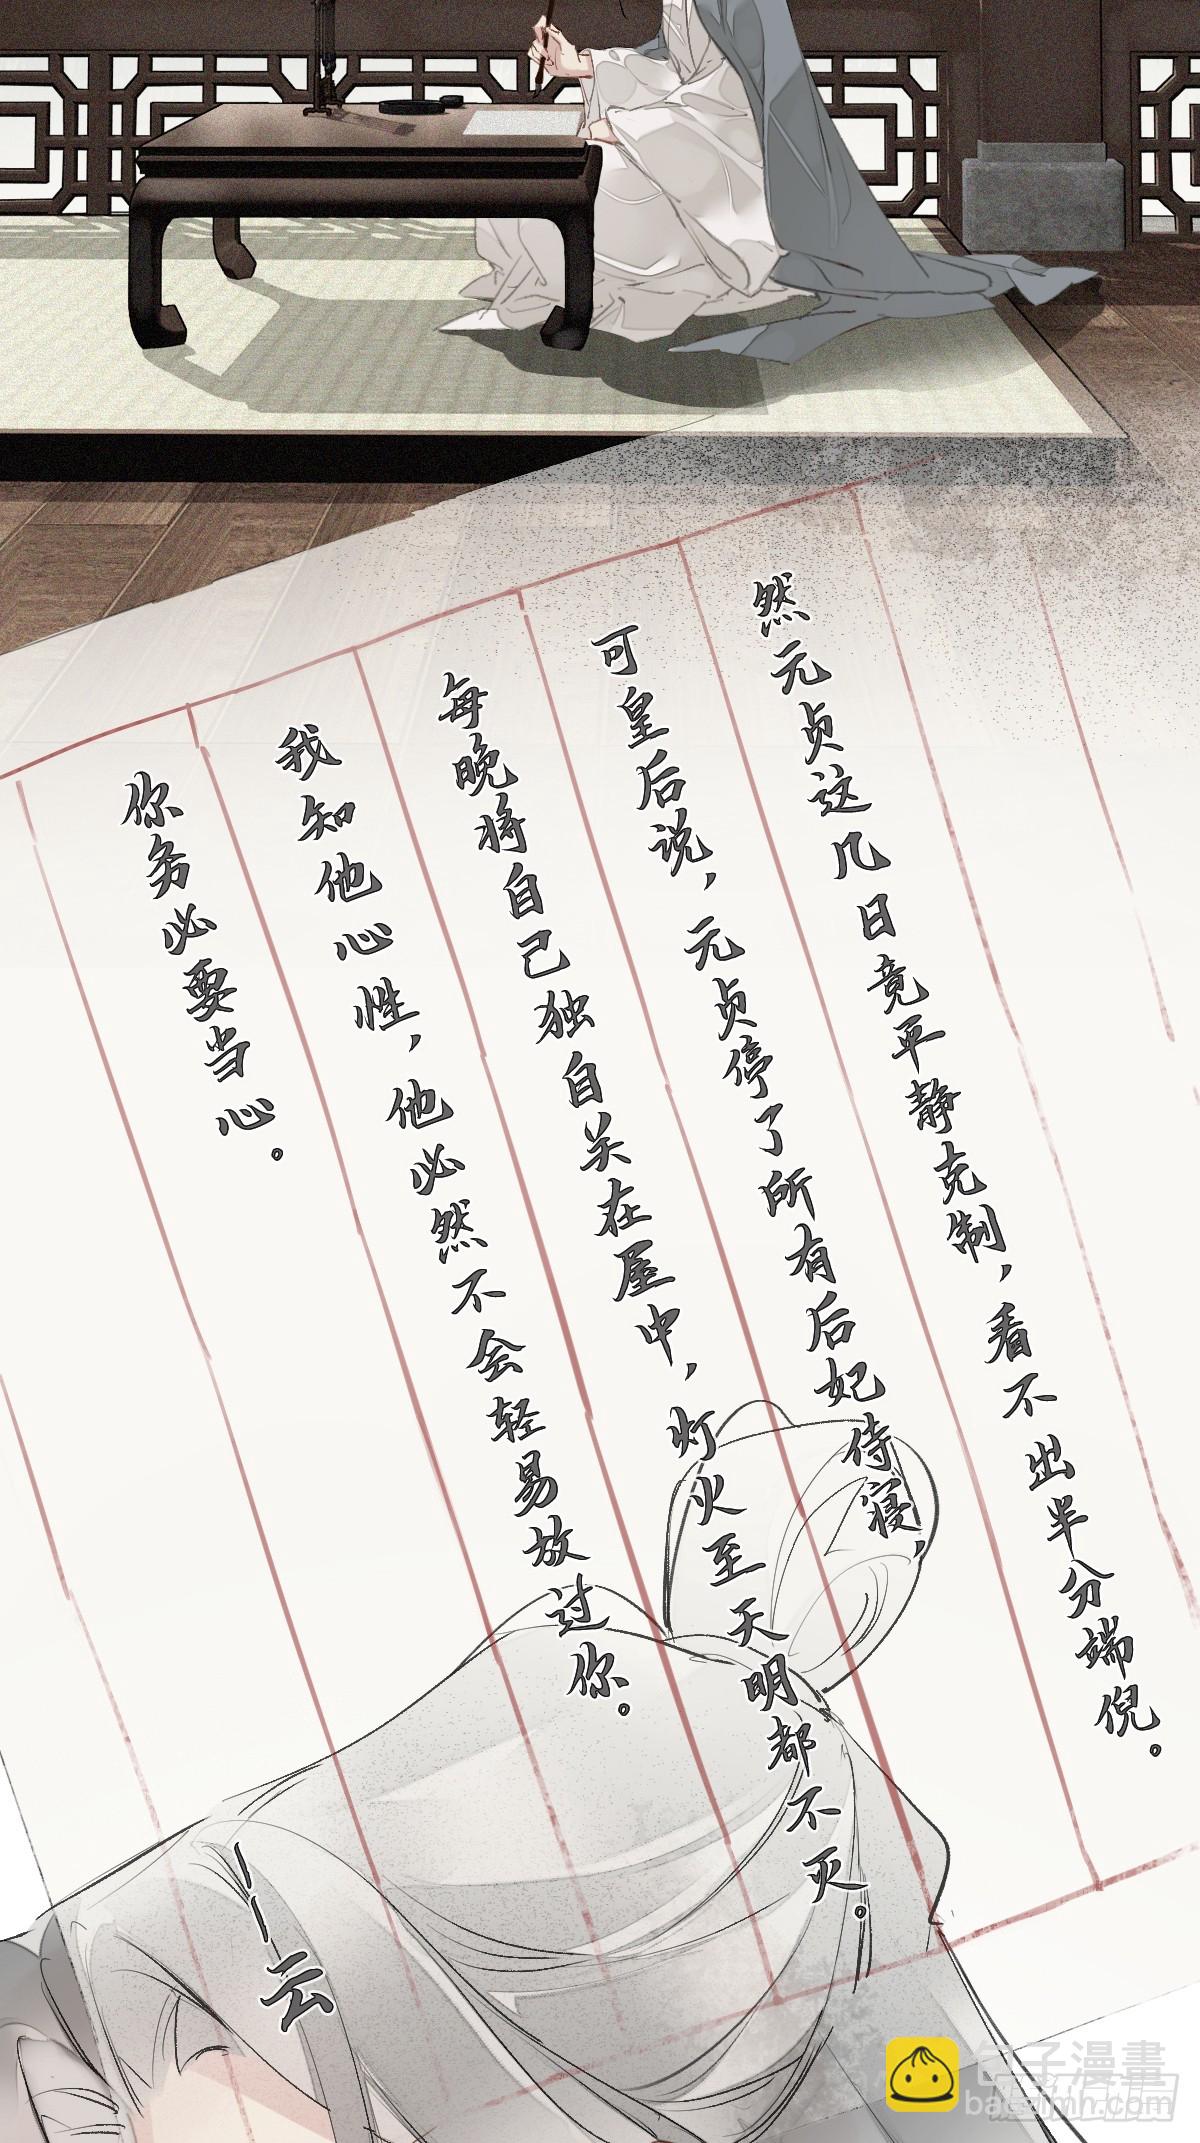 然元贞这几日竟平静克制，看不出半分端倪。
可皇后说，元贞停了所有后妃侍寝，
每晚将自己独自关在屋中，灯火至天明都不灭。
我知他心性，他必然不会轻易放过你。
你务必要当心。
——云
包子漫畫
baozimh.com